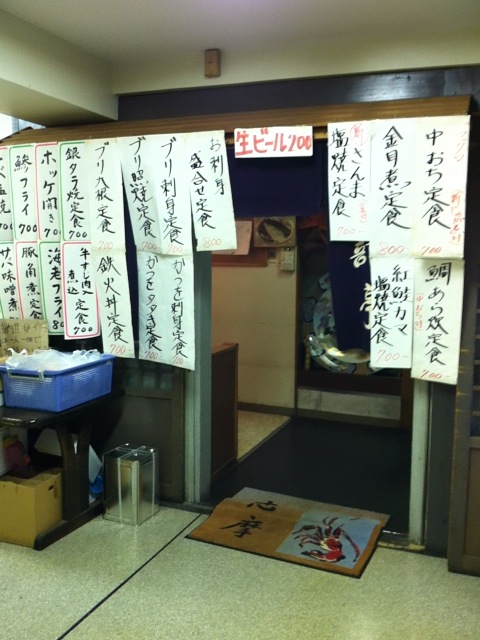 生ビール700
マグロ
中おち定食
700-
金目煮定食
800-
新
さんま
塩焼定食
700-
お刺身
盛合せ定食
800
ブリ刺身定食
ブリ照焼定食
ブリ大根定食
銀タラ焼定食
700
ホッケ開き
700
鯵フライ
700
鯛あら炊定食
700-
紅鮭カマ
塩焼定食
700-
かつを刺身定食
700-
かつをタタキ定食
700-
鉄火丼定食
700-
牛すじ肉
煮込定食
700
海老フライ
80
豚角煮定食
味噌煮
志摩